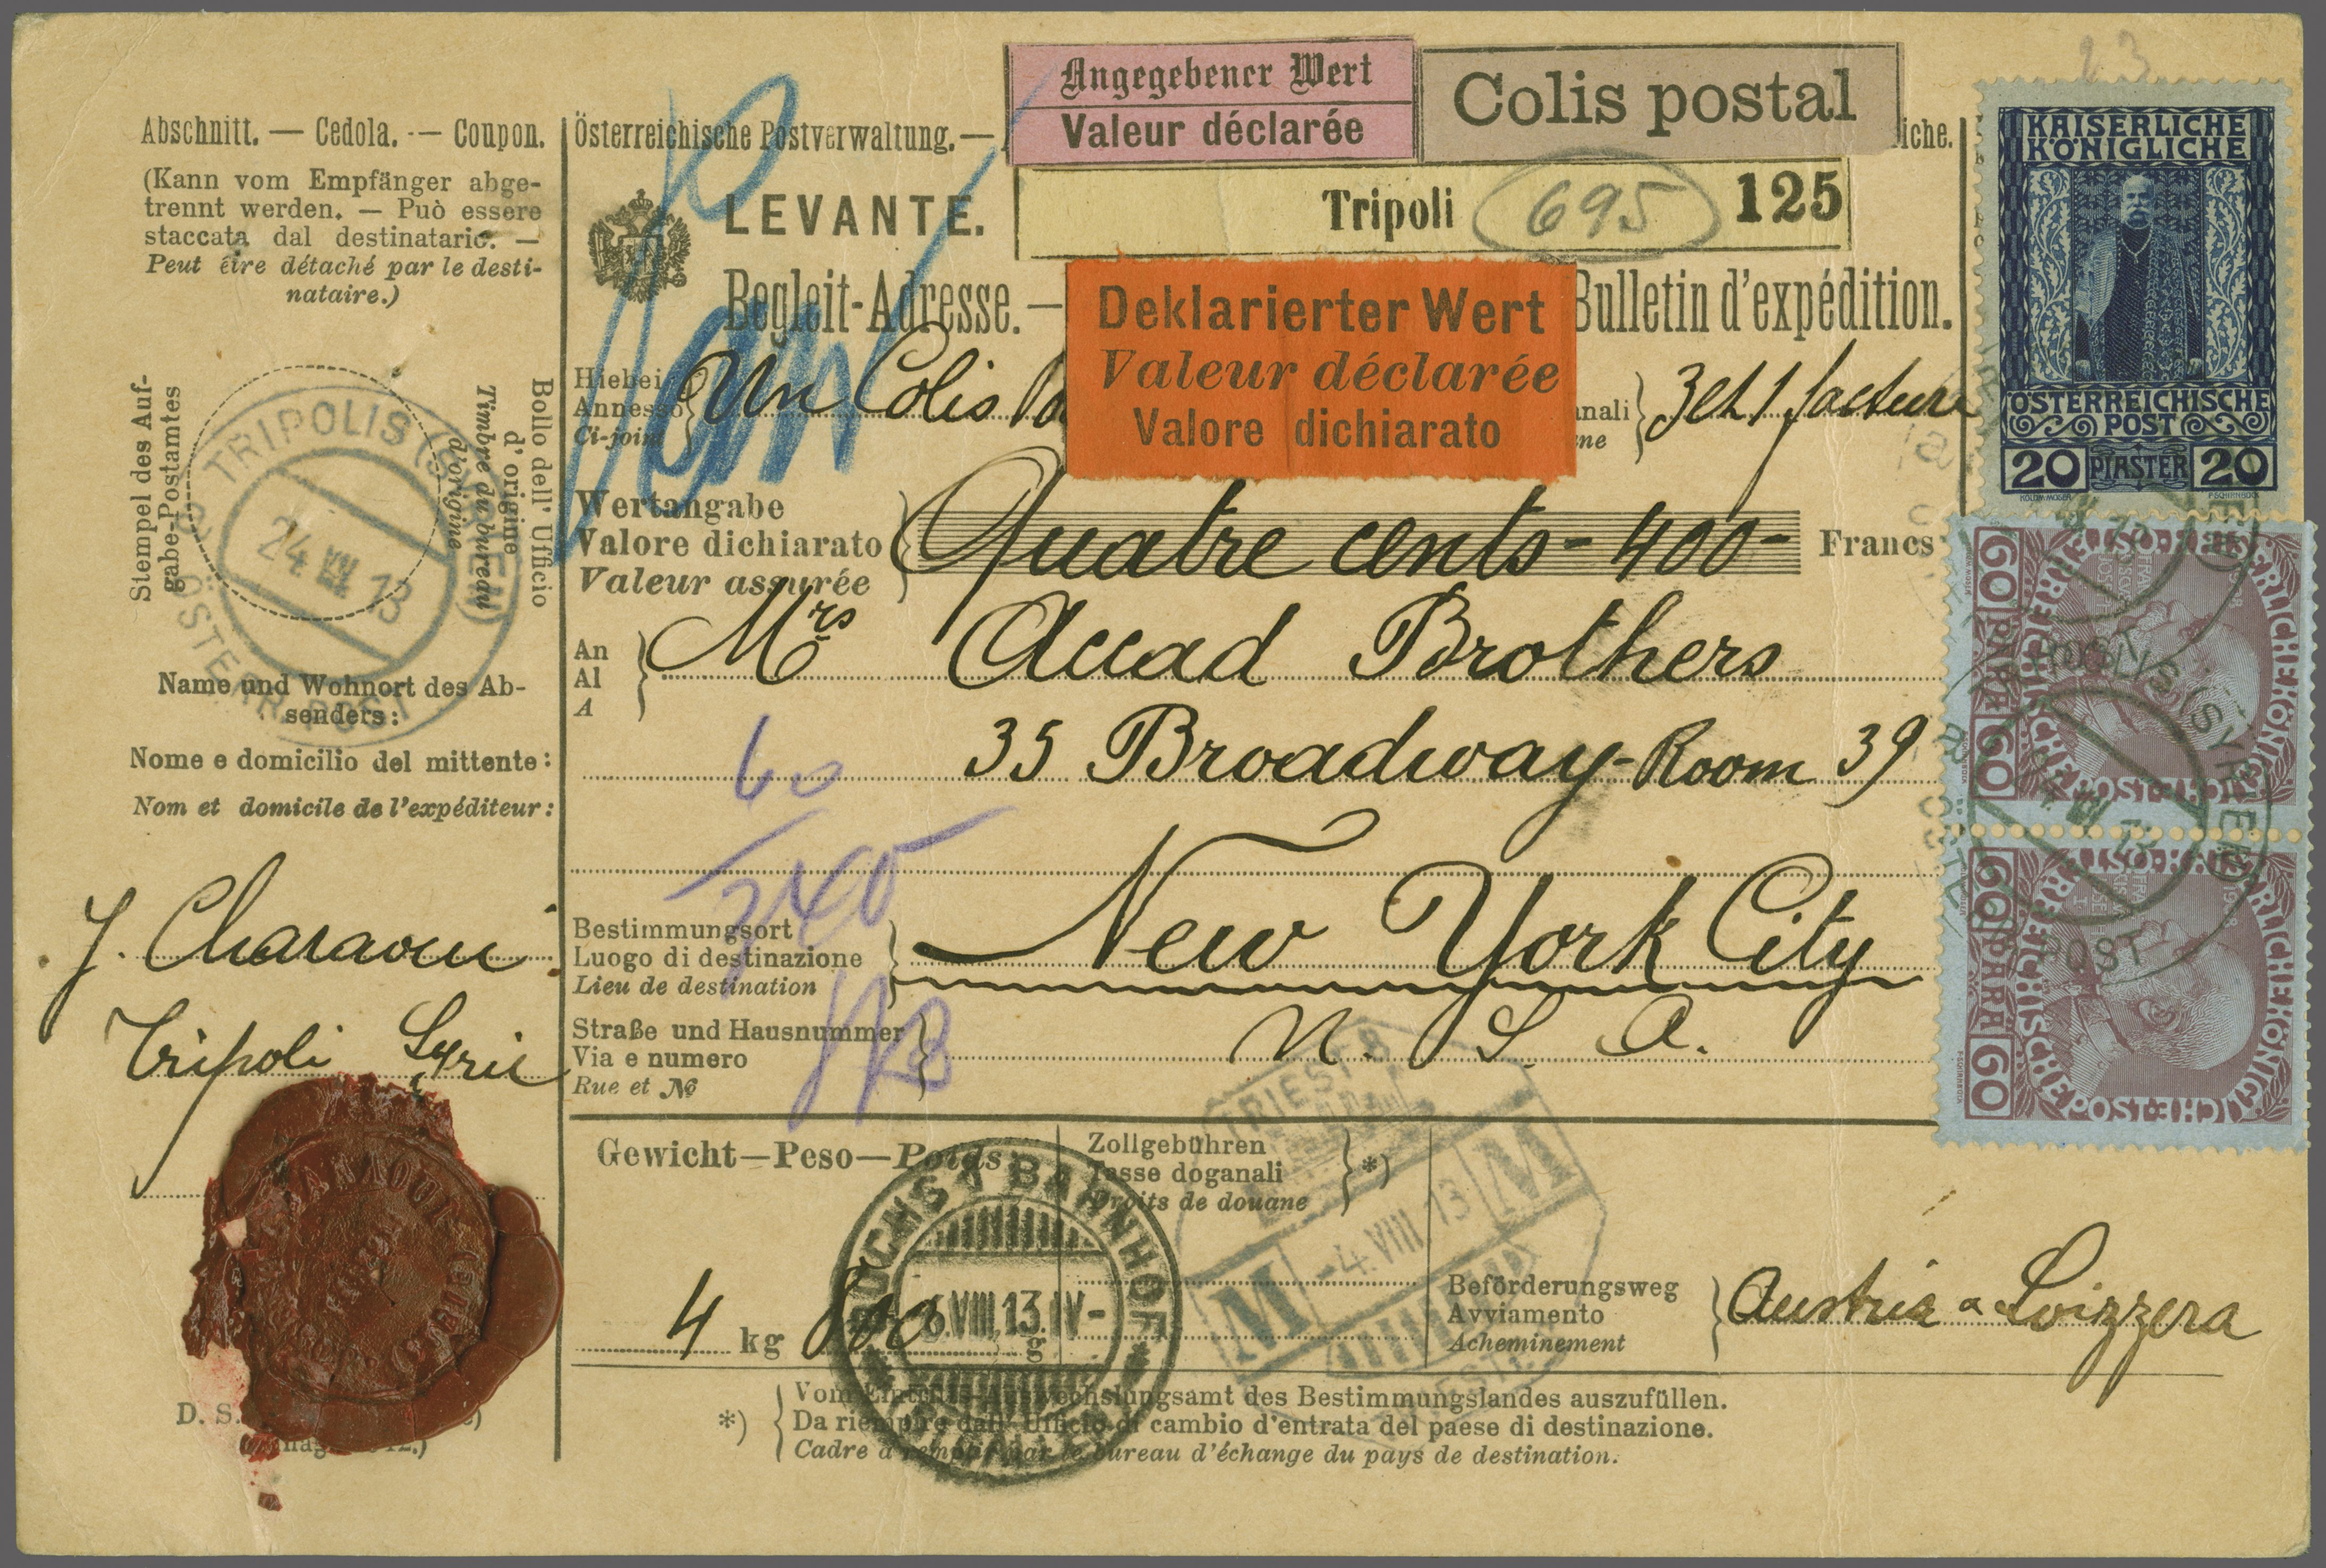 Angegebener Wert
Valeur déclarée
Colis postal
Abschnitt. — Cedola. — Coupon.
Österreichische Postverwaltung. —
iche.
(Kann vom Empfänger abge-
trennt werden. — Può essere
staccata dal destinatario. —
Peut être détaché par le desti-
nataire.)
LEVANTE.
Tripoli 695 125
Begleit-Adresse. —
Bulletin d'expédition.
Deklarierter Wert
Valeur déclarée
Valore dichiarato
Hiebei
Annesso
Ci-joint
Un Colis
anali
ne
3 et 1 facture
Stempel des Auf-
gabe-Postamtes
Bollo dell' Ufficio
d'origine
Timbre du bureau
d'origine
TRIPOLIS (SYRIEN)
24 VII 13
ÖSTERR. POST
Wertangabe
Valore dichiarato
Valeur assurée
Quatre cents - 400 -
Francs
An
Al
A
Mrs Accad Brothers
35 Broadway - Room 39
Name und Wohnort des Ab-
senders:
Nome e domicilio del mittente:
Nom et domicile de l'expéditeur:
60
J. Charaoui
Tripoli Syrie
Bestimmungsort
Luogo di destinazione
Lieu de destination
New York City
Straße und Hausnummer
Via e numero
Rue et No
U. S. A.
Gewicht—Peso—Poids
4 kg
g
Zollgebühren
Tasse doganali
Droits de douane
*)
BUCHS * BAHNHOF *
6.VIII.13.IV-
TRIESTE
M -4.VIII 13 M
TRIESTE
Beförderungsweg
Avviamento
Acheminement
Austria a Svizzera
D. S.
*)
Vom Eintritts-Auswechslungsamt des Bestimmungslandes auszufüllen.
Da riempire dall' Ufficio di cambio d'entrata del paese di destinazione.
Cadre à remplir par le bureau d'échange du pays de destination.
KAISERLICHE
KÖNIGLICHE
ÖSTERREICHISCHE
POST
20 PIASTER 20
KAISERLICHE KÖNIGLICHE
ÖSTERREICHISCHE POST
60 PARA 60
KAISERLICHE KÖNIGLICHE
ÖSTERREICHISCHE POST
60 PARA 60
TRIPOLIS (SYRIEN)
POST